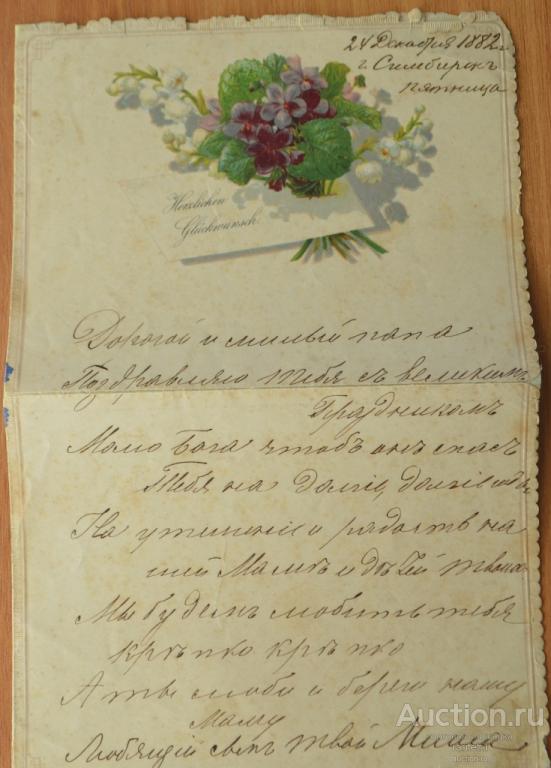 24 Декабря 1882 г.
г. Симбирскъ
пятница
Herzlichen
Glückwunsch.
Дорогой и милый папа
Поздравляю тебя съ великимъ
Праздникомъ
Молю Бога чтобъ онъ спасъ
Тебя на долгіе, долгіе
На утешеніе и радость на
шей Мамѣ и дѣтей твоихъ
Мы будемъ любить тебя
крѣпко крѣпко
А ты люби и береги нашу
Маму
Любящій твой Миша
Auction.ru